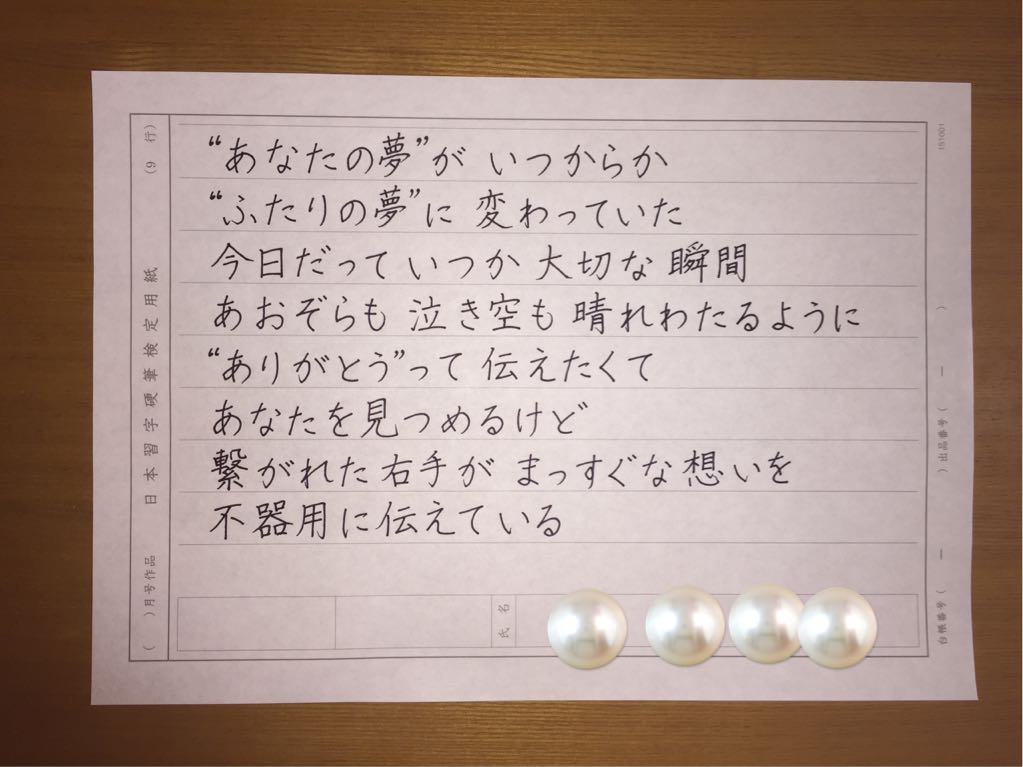 “あなたの夢”が いつからか
“ふたりの夢”に 変わっていた
今日だって いつか 大切な 瞬間
あおぞらも 泣き空も 晴れわたるように
“ありがとう”って 伝えたくて
あなたを見つめるけど
繋がれた右手が まっすぐな想いを
不器用に伝えている
氏名
( )月号作品 日本習字硬筆検定用紙 (9 行)
台帳番号( ー )出品番号( ー )
151001